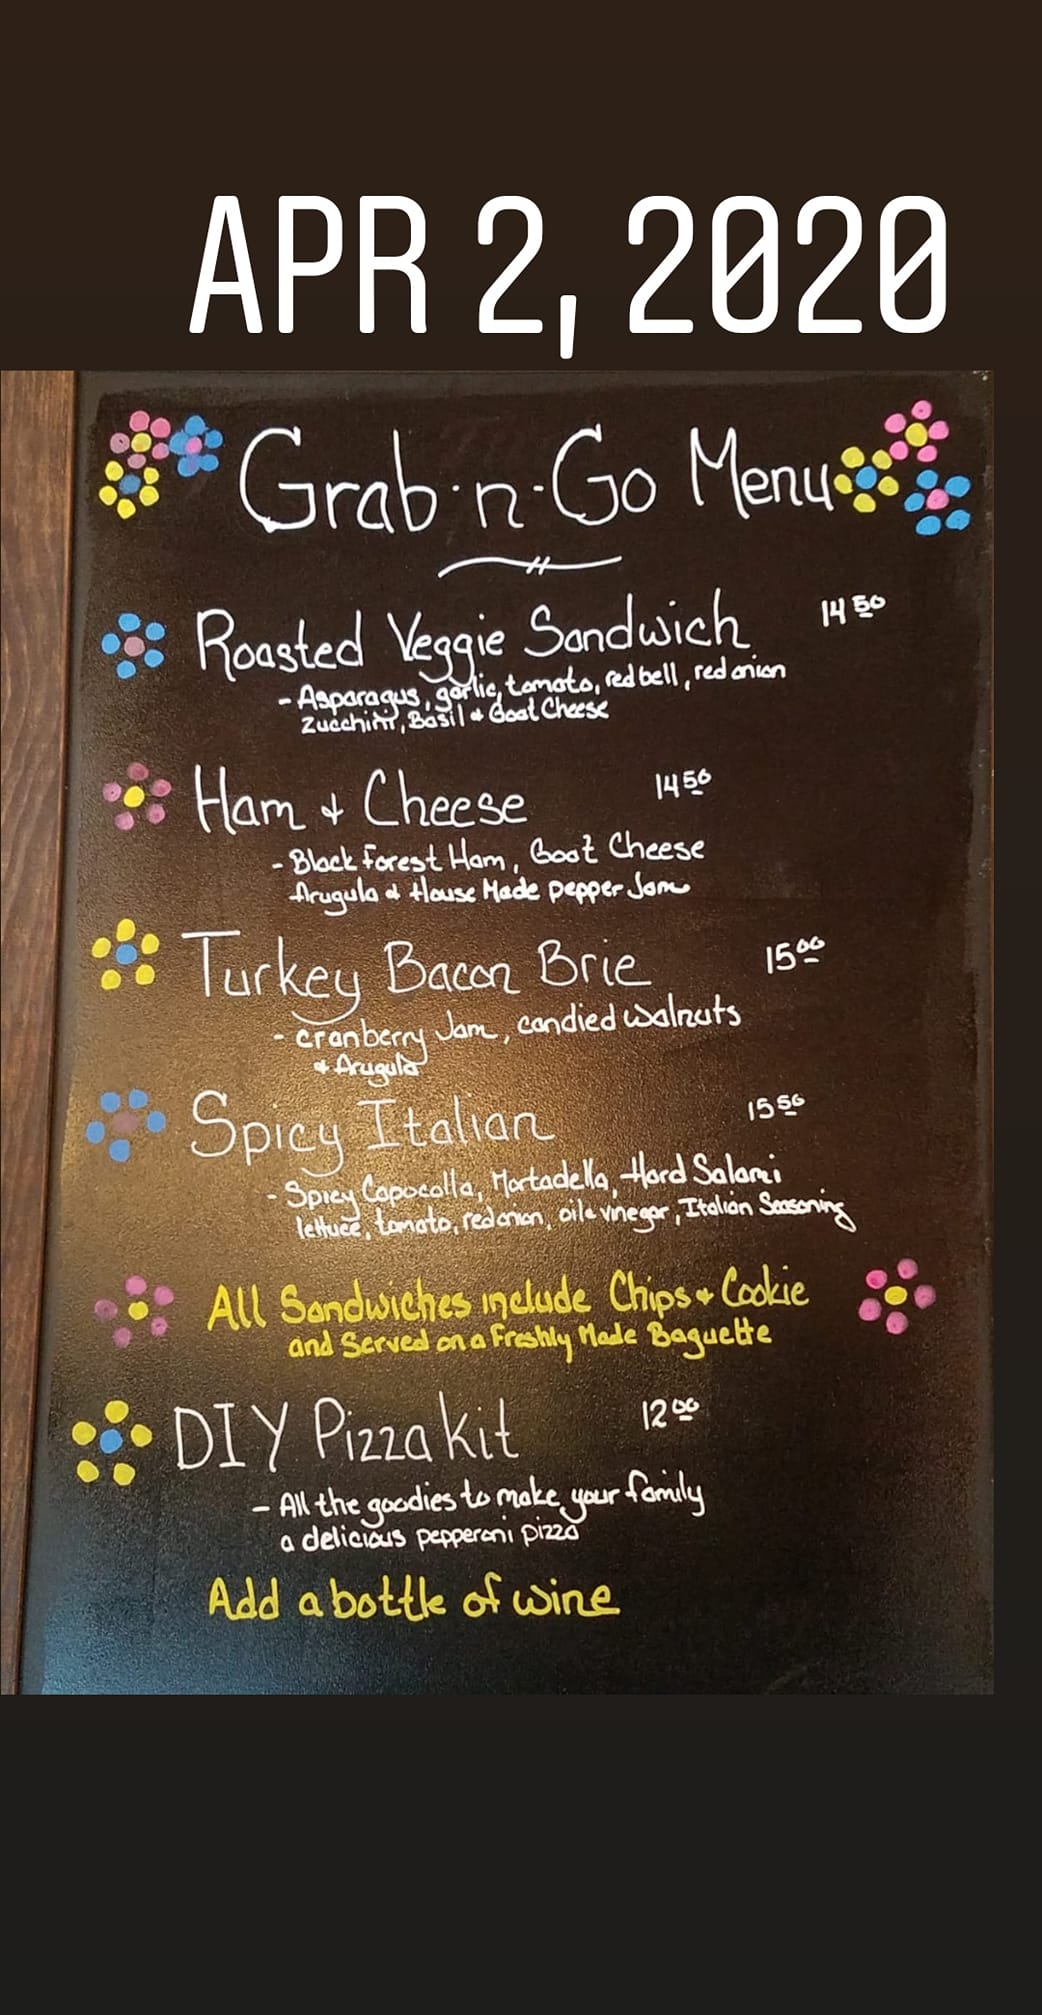 APR 2, 2020
Grab·n·Go Menu
Roasted Veggie Sandwich 14 50
- Asparagus, garlic, tomato, red bell, red onion
Zucchini, Basil & Goat Cheese
Ham & Cheese 14 50
- Black Forest Ham, Goat Cheese
Arugula & House Made Pepper Jam
Turkey Bacon Brie 15 00
- Cranberry Jam, candied walnuts
& Arugula
Spicy Italian 15 50
- Spicy Capocolla, Mortadella, Hard Salami
lettuce, tomato, red onion, oil & vinegar, Italian Seasoning
All Sandwiches include Chips & Cookie
and Served on a Freshly Made Baguette
DIY Pizza kit 12 00
- All the goodies to make your family
a delicious pepperoni pizza
Add a bottle of wine